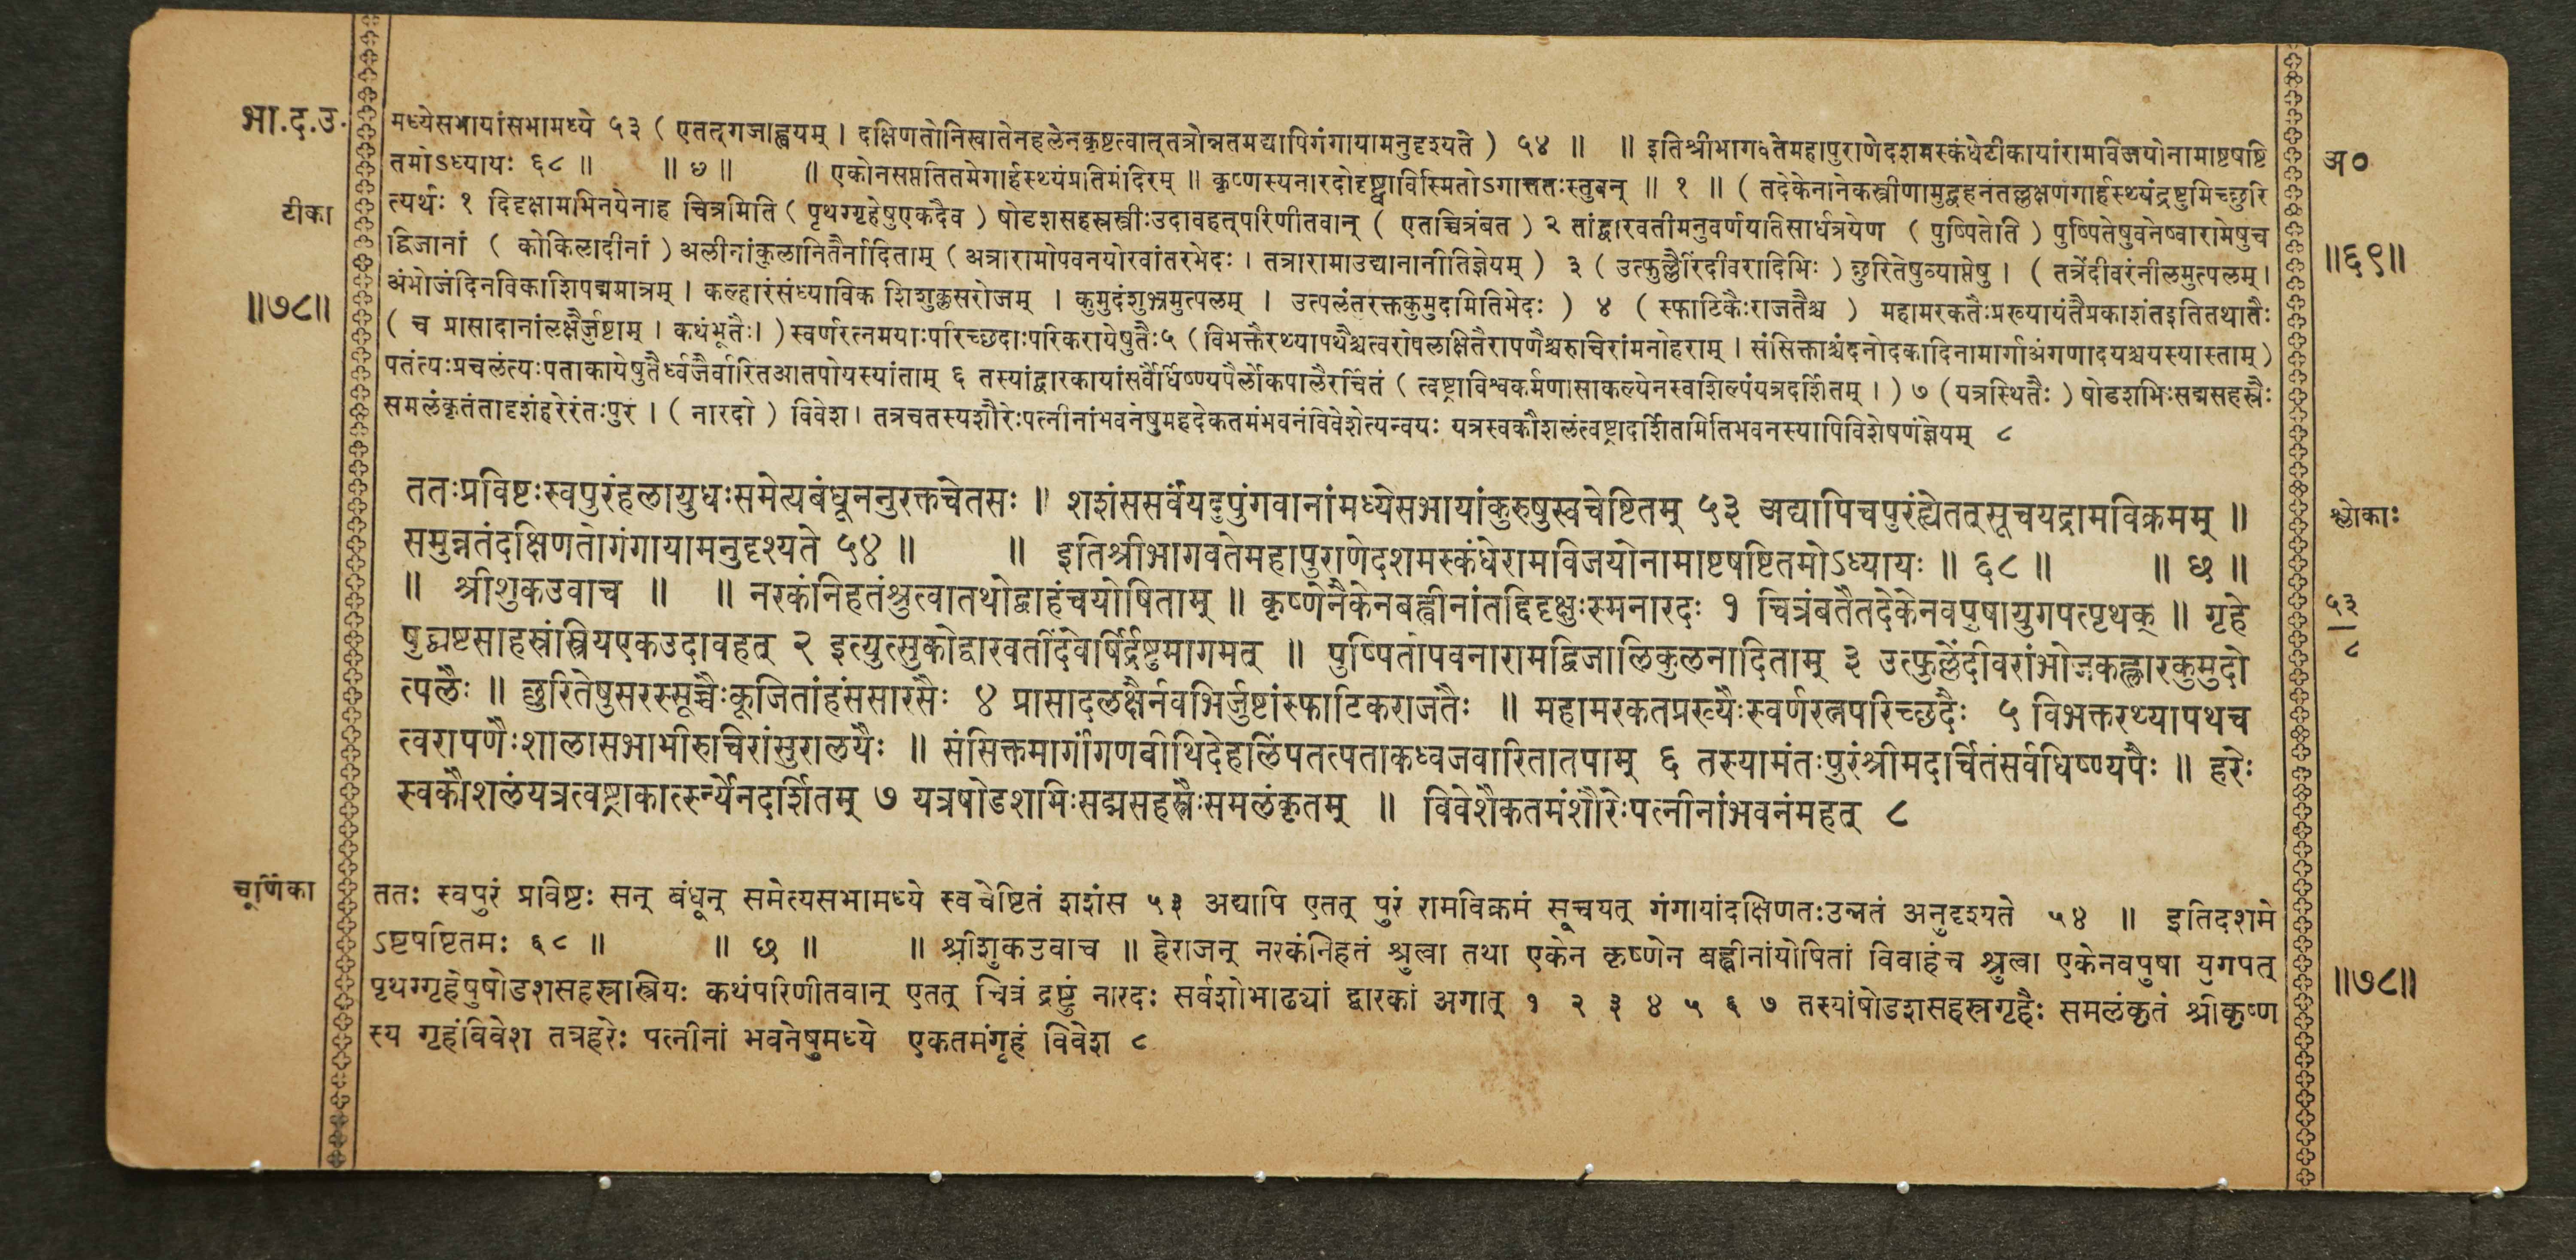 भा.द.उ.
टीका
॥७८॥
मध्येसभायांसभामध्ये ५३ ( एतत्गजाह्वयम् । दक्षिणतोनिखातेनहलेनकृष्टत्वात्तत्रोन्नतमद्यापिगंगायामनुदृश्यते ) ५४ ॥ ॥ इतिश्रीभागवतेमहापुराणेदशमस्कंधेटीकायांरामविजयोनामाष्टषष्टि
तमोऽध्यायः ६८ ॥ ॥ छ ॥ ॥ एकोनसप्ततितमेगार्हस्थ्यंप्रतिमंदिरम् ॥ कृष्णस्यनारदोदृष्ट्वाविस्मितोऽगात्ततःस्तुवन् ॥ १ ॥ ( तदेकेनानेकस्त्रीणामुद्वहनंतल्लक्षणंगार्हस्थ्यंद्रष्टुमिच्छुरि
त्यर्थः १ दिदृक्षामभिनयेनाह चित्रमिति ( पृथग्गृहेषुएकदैव ) षोडशसहस्रस्त्रीःउदावहत्परिणीतवान् ( एतच्चित्रंबत ) २ तांद्वारवतीमनुवर्णयतिसार्धत्रयेण ( पुष्पितेति ) पुष्पितेषुवनेष्वारामेषुच
द्विजानां ( कोकिलादीनां ) अलीनांकुलानितैर्नादिताम् ( अत्रारामोपवनयोरवांतरभेदः । तत्रारामाउद्यानानीतिज्ञेयम् ) ३ ( उत्फुल्लैरिंदीवरादिभिः ) छुरितेषुव्याप्तेषु । ( तत्रेंदीवरंनीलमुत्पलम् ।
अंभोजंदिनविकाशिपद्ममात्रम् । कल्हारंसंध्याविक शिशुक्लसरोजम् । कुमुदंशुभ्रमुत्पलम् । उत्पलंतरक्तकुमुदामितिभेदः ) ४ ( स्फाटिकैःराजतैश्च ) महामरकतैःप्रख्यायंतैप्रकाशंतइतितथातैः
( च प्रासादानांलक्षैर्जुष्टाम् । कथंभूतैः। ) स्वर्णरत्नमयाःपरिच्छदाःपरिकरायेषुतैः५ ( विभक्तैरथ्यापथैश्चत्वरोपलाक्षितैरापणैश्चरुचिरांमनोहराम् । संसिक्ताश्चंदनोदकादिनामार्गाअंगणादयश्चयस्यास्ताम् )
पतंत्यःप्रचलंत्यःपताकायेषुतैर्ध्वजैर्वारितआतपोयस्यांताम् ६ तस्यांद्वारकायांसर्वैर्धिष्ण्यपैर्लोकपालैरर्चितं ( त्वष्ट्राविश्वकर्मणासाकल्येनस्वशिल्पंयत्रदर्शितम् । ) ७ ( यत्रस्थितैः ) षोडशभिःसद्मसहस्रैः
समलंकृतंतादृशंहरेरंतःपुरं । ( नारदो ) विवेश । तत्रचतस्यशौरेःपत्नीनांभवनेषुमहदेकतमंभवनंविवेशेत्यन्वयः यत्रस्वकौशलंत्वष्ट्रादर्शितामितिभवनस्यापिविशेषणंज्ञेयम् ८
ततःप्रविष्टःस्वपुरंहलायुधःसमेत्यबंधूननुरक्तचेतसः ॥ शशंससर्वंयदुपुंगवानांमध्येसभायांकुरुषुस्वचेष्टितम् ५३ अद्यापिचपुरंह्येतत्सूचयद्रामविक्रमम् ॥
समुन्नतंदक्षिणतोगंगायामनुदृश्यते ५४ ॥ ॥ इतिश्रीभागवतेमहापुराणेदशमस्कंधेरामविजयोनामाष्टषष्टितमोऽध्यायः ॥ ६८ ॥ ॥ छ ॥
॥ श्रीशुकउवाच ॥ ॥ नरकंनिहतंश्रुत्वातथोद्वाहंचयोषिताम् ॥ कृष्णेनैकेनबह्वीनांतद्दिदृक्षुःस्मनारदः १ चित्रंबतैतदेकेनवपुषायुगपत्पृथक् ॥ गृहे
षुद्व्यष्टसाहस्रंस्त्रियएकउदावहत् २ इत्युत्सुकोद्वारवतींदेवर्षिर्द्रष्टुमागमत् ॥ पुष्पितोपवनारामद्विजालिकुलनादिताम् ३ उत्फुल्लेंदीवरांभोजकह्लारकुमुदो
त्पलैः ॥ छुरितेषुसरस्सूच्चैःकूजितांहंससारसैः ४ प्रासादलक्षैर्नवभिर्जुष्टांस्फाटिकराजतैः ॥ महामरकतप्रख्यैःस्वर्णरत्नपरिच्छदैः ५ विभक्तरथ्यापथच
त्वरापणैःशालासभाभीरुचिरांसुरालयैः ॥ संसिक्तमार्गांगणवीथिदेहलिंपतत्पताकध्वजवारितातपाम् ६ तस्यामंतःपुरंश्रीमदर्चितंसर्वधिष्ण्यपैः ॥ हरेः
स्वकौशलंयत्रत्वष्ट्राकार्त्स्न्येनदर्शितम् ७ यत्रषोडशभिःसद्मसहस्रैःसमलंकृतम् ॥ विवेशैकतमंशौरेःपत्नीनांभवनंमहत् ८
चूर्णिका
ततः स्वपुरं प्रविष्टः सन् बंधून् समेत्यसभामध्ये स्वचेष्टितं शशंस ५३ अद्यापि एतत् पुरं रामविक्रमं सूचयत् गंगायांदक्षिणतःउन्नतं अनुदृश्यते ५४ ॥ इतिदशमे
ऽष्टषष्टितमः ६८ ॥ ॥ छ ॥ ॥ श्रीशुकउवाच ॥ हेराजन् नरकंनिहतं श्रुत्वा तथा एकेन कृष्णेन बह्वीनांयोषितां विवाहंच श्रुत्वा एकेनवपुषा युगपत्
पृथग्गृहेषुषोडशसहस्रास्त्रियः कथंपरिणीतवान् एतत् चित्रं द्रष्टुं नारदः सर्वशोभाढ्यां द्वारकां अगात् १ २ ३ ४ ५ ६ ७ तस्यांषोडशसहस्रगृहैः समलंकृतं श्रीकृष्ण
स्य गृहंविवेश तत्रहरेः पत्नीनां भवनेषुमध्ये एकतमंगृहं विवेश ८
अ०
॥६९॥
श्लोकाः
५३
८
॥७८॥